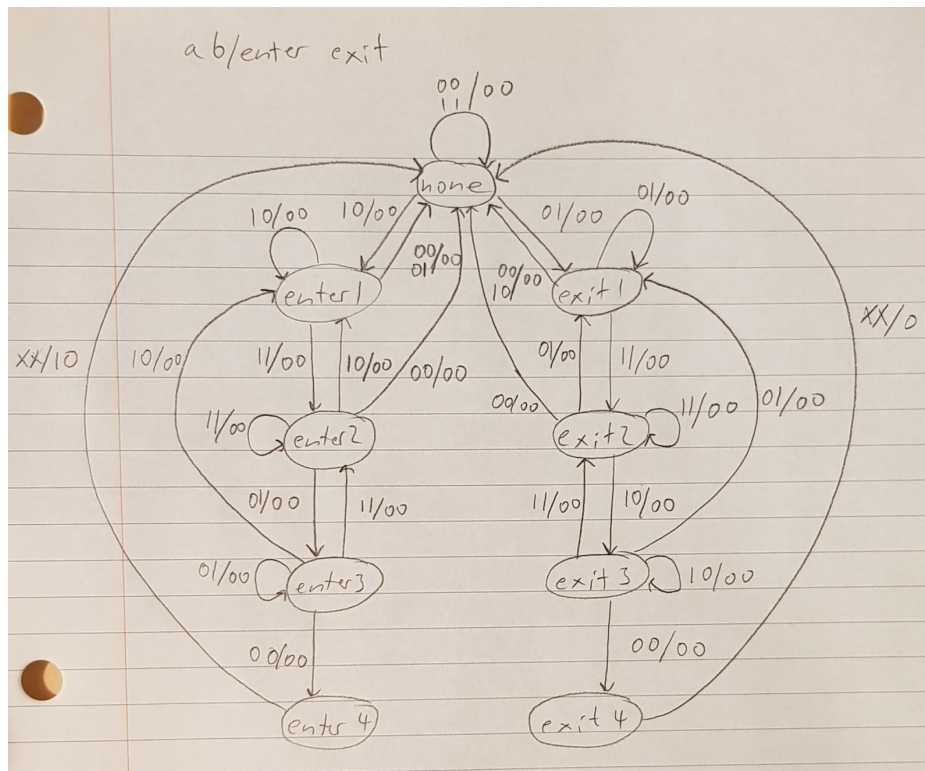 ab/enter exit
00/00
11
none
10/00
10/00
01/00
01/00
00/00
01
00/00
10
enter1
exit1
XX/10
10/00
11/00
10/00
00/00
01/00
11/00
01/00
XX/0
00/00
11/00
11/00
enter2
exit2
01/00
11/00
11/00
10/00
01/00
enter3
exit3
10/00
00/00
00/00
enter 4
exit 4